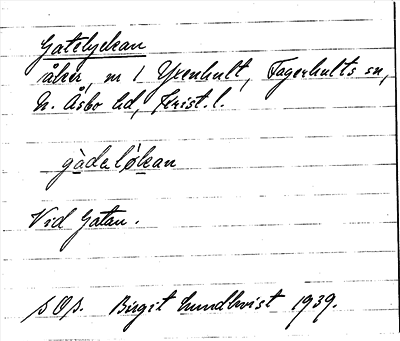 Gatelyckan
åker, nr 1 Yxenhult, Fagerhults sn,
N. Åsbo hd, Krist. l.
gàdeløkan
Vid Gatan.
s Os. Birgit Lundkvist 1939.